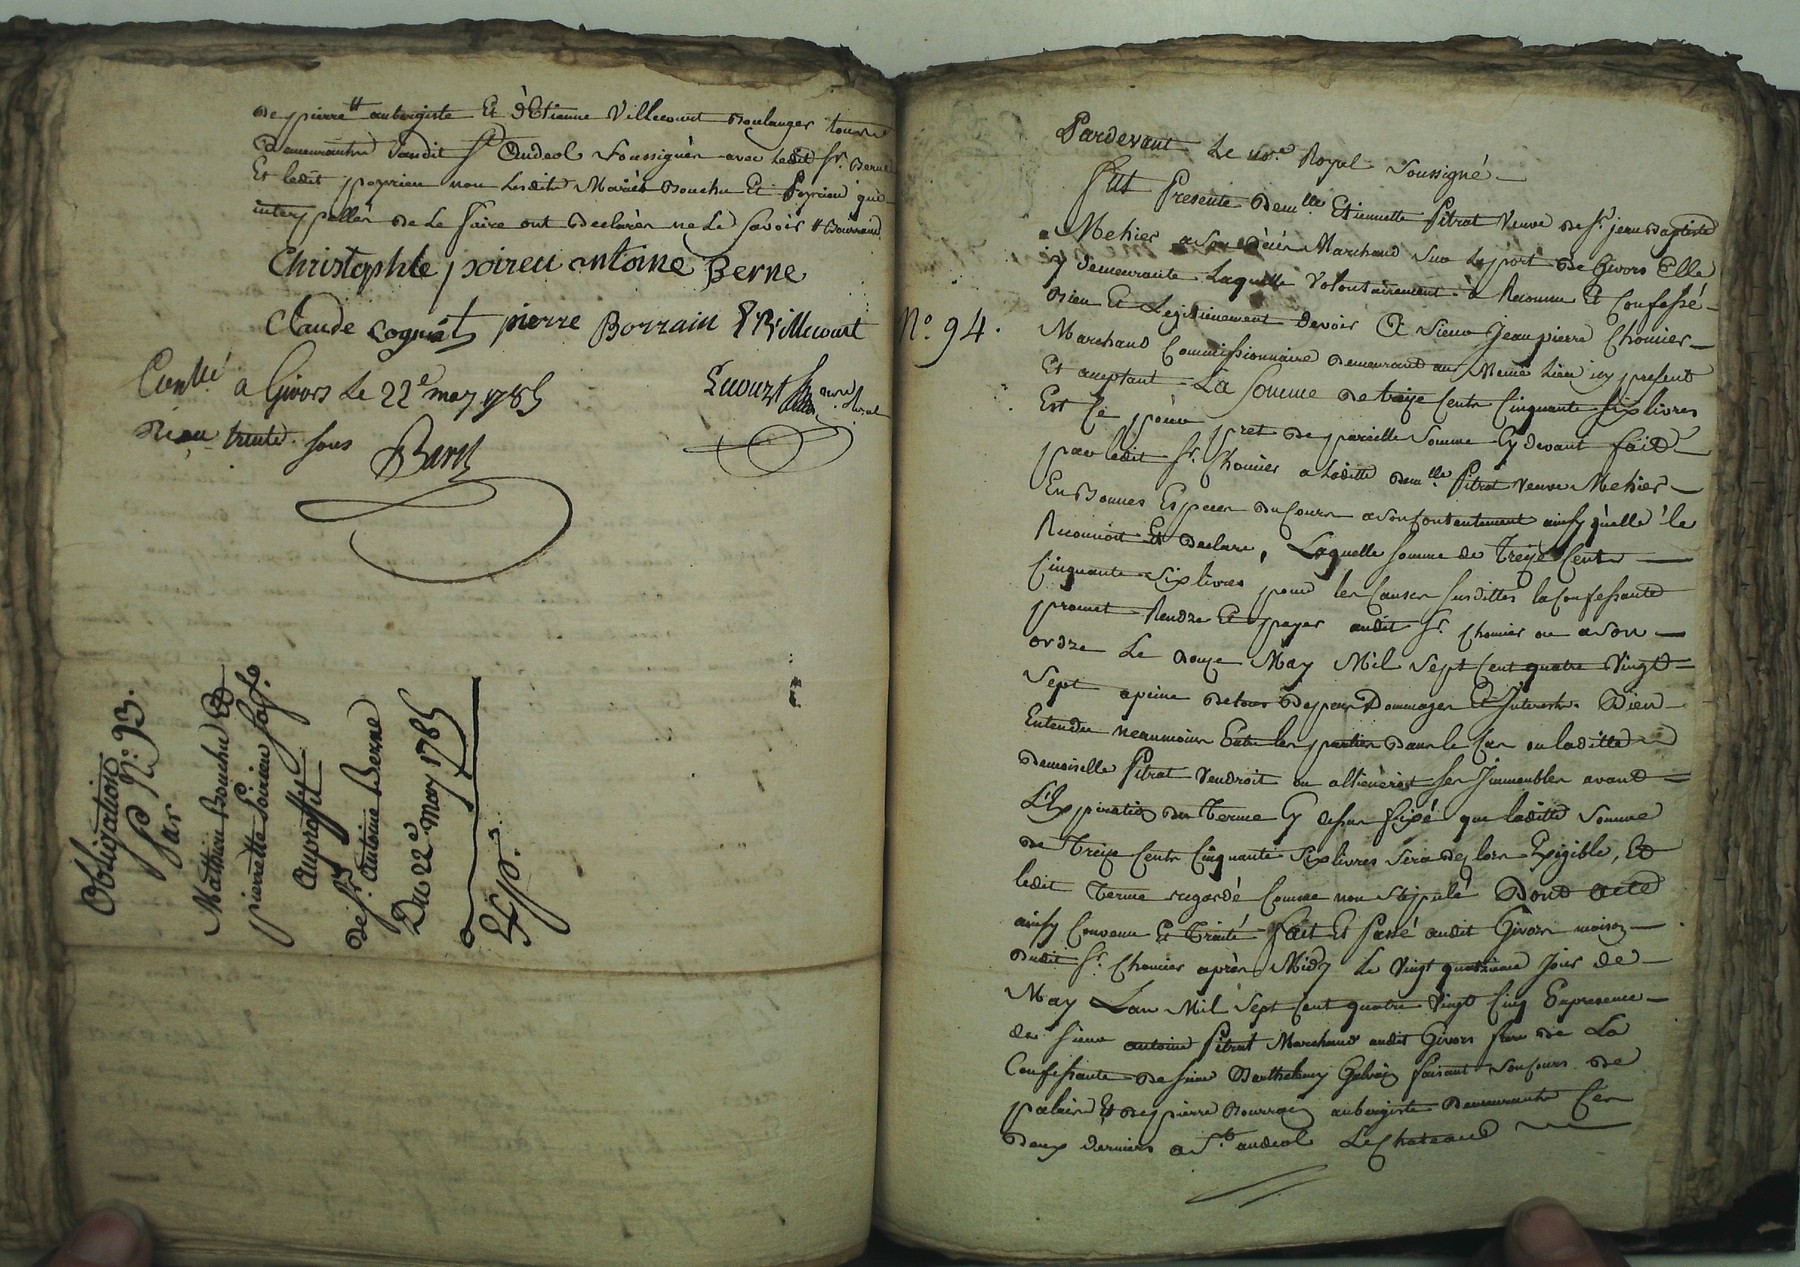 de pierre tt aubergiste Et d'Etienne Villecourt Boulanger tous
Demeurants audit St Andeol Soussignés avec ledit Sr. Berne
Et ledit poyrieu non lesdits Mariés Bouchu Et Poyrieu que
interpellés de Le faire ont declarés ne Le Savoir
Christophle poireu antoine Berne
Claude Cognat pierre Borrain E Villecourt
Conllé a Givors Le 22e may 1785
Reçu trente sous
Obligation
P No. 93.
Par
Mathieu Bouchu Et
pierrette Poirieu Sa fe.
Au proffit
de Sr. Antoine Berne
Du 22e May 1785
Exp.
No. 94.
Pardevant Le no.re Royal Soussigné
Fut Presente Demlle Etiennette Pitrat Veuve de Sr. jean Baptiste
Mehier a son décès Marchand Sur Le port de Givors Elle
y demeurante Laquelle Volontairement a Reconnu Et Confessé
Bien Et Legitimement devoir A Sieur Jean pierre Chomier
Marchand Commissionnaire demeurant au Meme Lieu icy present
Et acceptant La Somme de treize Cents Cinquante Six livres
Est Ce pour pret de pareille Somme Cy devant fait
par ledit Sr. Chomier a Laditte Demlle Pitrat Veuve Mehier
En Bonnes Especes du Cours a son Contentement ainsy qu'elle le
Reconnoit Et Declare, Laquelle Somme de Treize Cents
Cinquante Six livres pour les Causes susdittes la Confessante
promet Rendre Et payer audit Sr. Chomier ou a Son
ordre Le douze May Mil Sept Cent quatre Vingt
Sept a peine de tous Depens Dommages Et Interets. Bien
Entendu neanmoins Entre les parties dans le Cas ou laditte
Demoiselle Pitrat Vendroit ou allieneroit Ses Immeubles avant
L'Expiration du Terme Cy dessus fixé que laditte Somme
de Treize Cents Cinquante Six livres Sera dez lors Exigible, Et
ledit Terme regardé Comme non Stipulé Dont acte
ainsy Convenu Et Traité Fait Et Passé audit Givors maison
Dudit Sr. Chomier après Midy Le Vingt quatrieme Jour de
May Lan Mil Sept Cent quatre Vingt Cinq En presence
de Sieur antoine Pitrat Marchand audit Givors frere de La
Confessante de Sieur Barthelemy faisant Son Cours de
palais Et de pierre Bourrain aubergiste Demeurants Ces
deux derniers a St. andeol Le Chateau